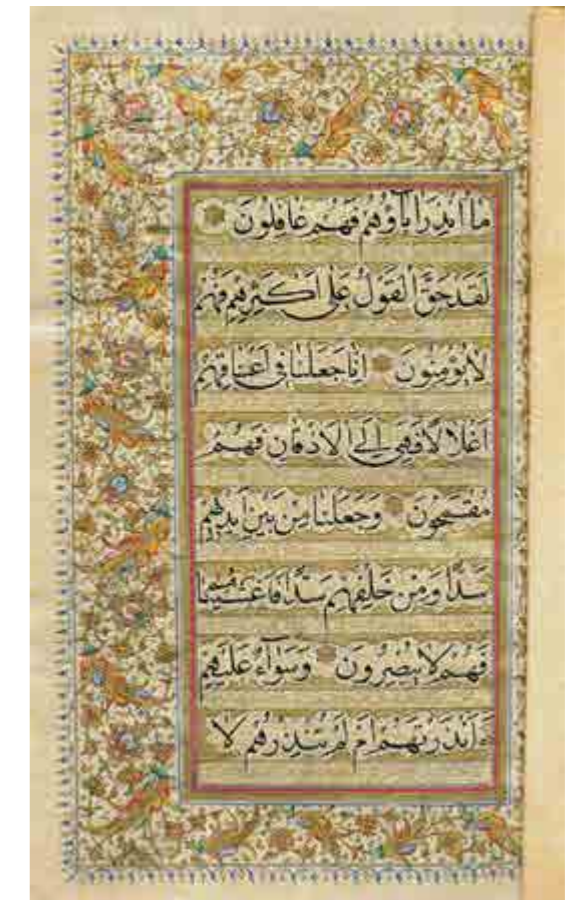 مٰا اُنْذِرَ اٰبٰآؤُهُمْ فَهُمْ غٰافِلُونَ
لَقَدْ حَقَّ الْقَوْلُ عَلٰى اَكْثَرِهِمْ فَهُمْ
لٰا يُؤْمِنُونَ اِنّٰا جَعَلْنٰا فٖى اَعْنٰاقِهِمْ
اَغْلٰالًا فَهِىَ اِلَى الْاَذْقٰانِ فَهُمْ
مُقْمَحُونَ وَجَعَلْنٰا مِنْ بَيْنِ اَيْدٖيهِمْ
سَدًّا وَمِنْ خَلْفِهِمْ سَدًّا فَاَغْشَيْنٰاهُمْ
فَهُمْ لٰا يُبْصِرُونَ وَسَوٰآءٌ عَلَيْهِمْ
ءَاَنْذَرْتَهُمْ اَمْ لَمْ تُنْذِرْهُمْ لٰا